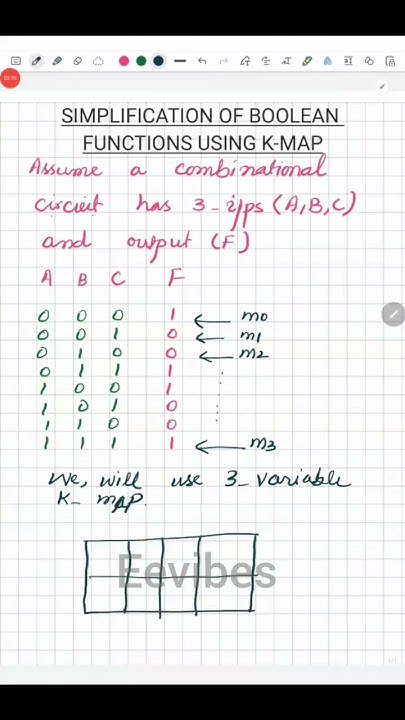 03:10
SIMPLIFICATION OF BOOLEAN
FUNCTIONS USING K-MAP
Assume a combinational
circuit has 3-i/ps (A,B,C)
and output (F)
A B C F
0 0 0 1 ← m0
0 0 1 0 ← m1
0 1 0 0 ← m2
0 1 1 1
1 0 0 1
1 0 1 0
1 1 0 0
1 1 1 1 ← m3
We, will use 3-variable
K-map.
Eevibes